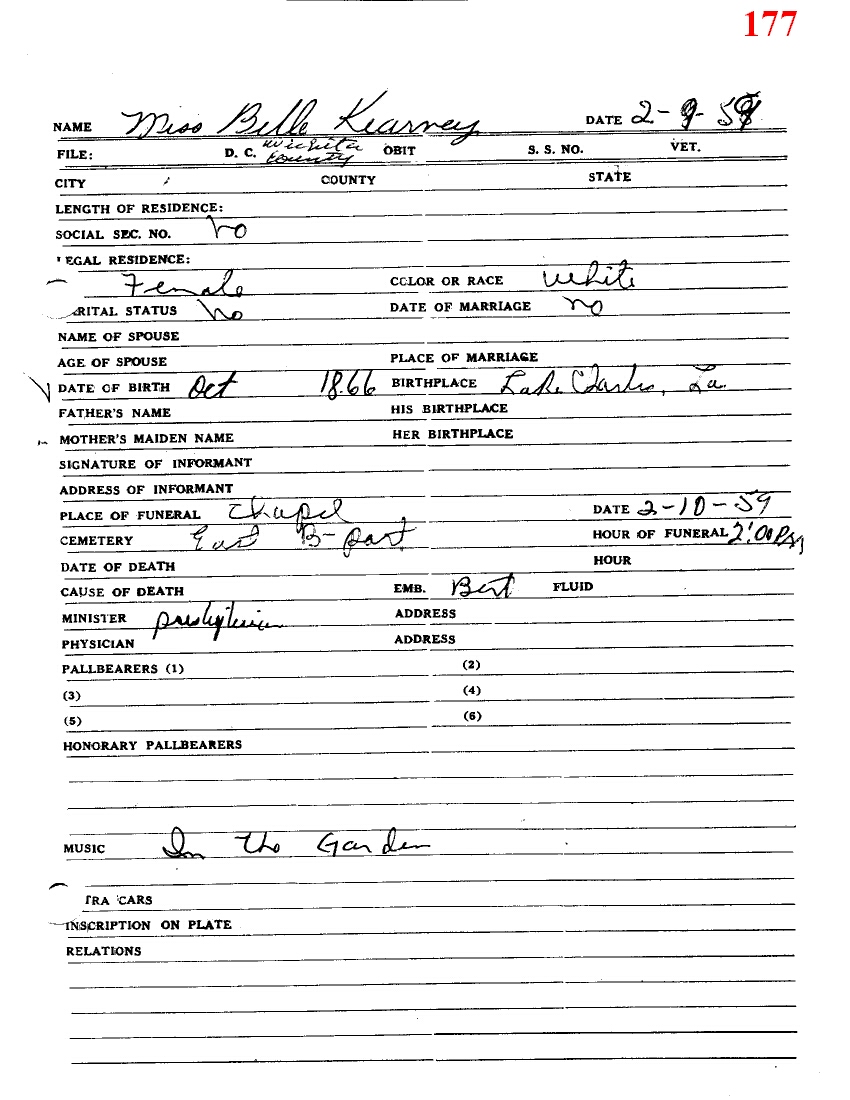 177
NAME Miss Belle Kearney DATE 2-9-59
FILE: D. C. Wichita County OBIT S. S. NO. VET.
CITY COUNTY STATE
LENGTH OF RESIDENCE:
SOCIAL SEC. NO. no
EGAL RESIDENCE:
Female COLOR OR RACE White
RITAL STATUS No DATE OF MARRIAGE no
NAME OF SPOUSE
AGE OF SPOUSE PLACE OF MARRIAGE
DATE OF BIRTH Oct 1866 BIRTHPLACE Lake Charles, La.
FATHER'S NAME HIS BIRTHPLACE
MOTHER'S MAIDEN NAME HER BIRTHPLACE
SIGNATURE OF INFORMANT
ADDRESS OF INFORMANT
PLACE OF FUNERAL Chapel DATE 2-10-59
CEMETERY East B-part HOUR OF FUNERAL 2:00 PM
DATE OF DEATH HOUR
CAUSE OF DEATH EMB. Bert FLUID
MINISTER presbyterian ADDRESS
PHYSICIAN ADDRESS
PALLBEARERS (1) (2)
(3) (4)
(5) (6)
HONORARY PALLBEARERS
MUSIC In the Garden
TRA CARS
INSCRIPTION ON PLATE
RELATIONS